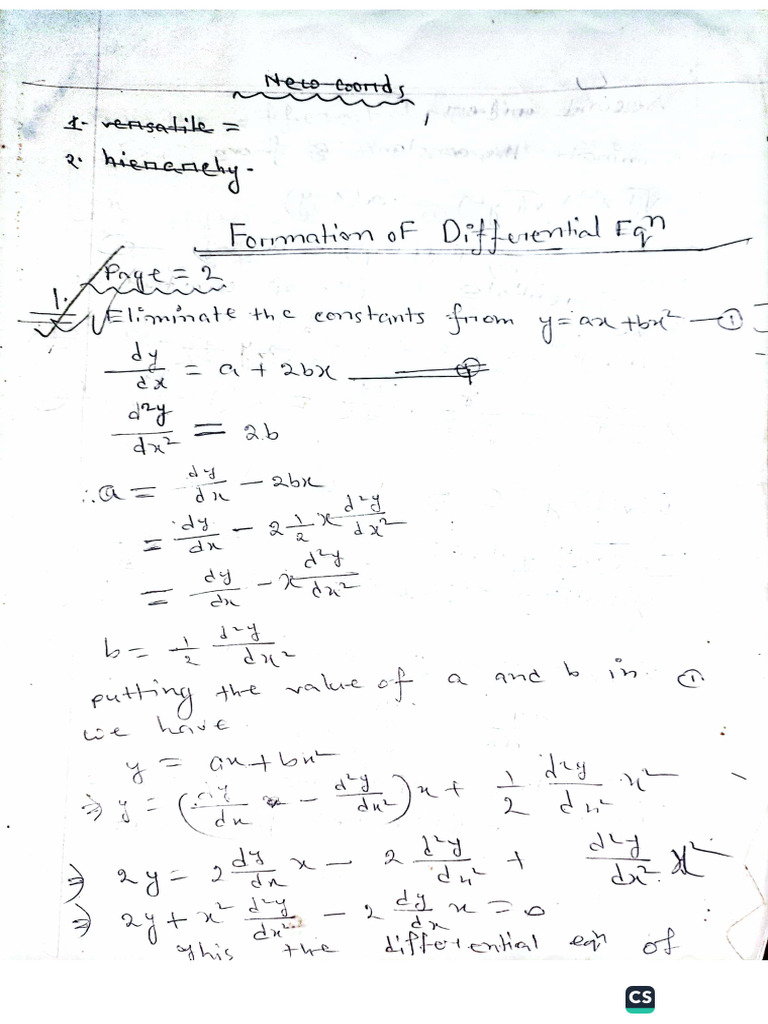 New words,
1. versatile =
2. hierarchy.
Formation of Differential Eqⁿ
Page = 2
1. Eliminate the constants from y = ax + bx² — ①
dy/dx = a + 2bx
d²y/dx² = 2b
∴ a = dy/dx - 2bx
= dy/dx - 2 1/2 x d²y/dx²
= dy/dx - x d²y/dx²
b = 1/2 d²y/dx²
putting the value of a and b in ①
we have
y = ax + bx²
⇒ y = (dy/dx - d²y/dx²) x + 1/2 d²y/dx² x²
⇒ 2y = 2 dy/dx x - 2 d²y/dx² + d²y/dx² x²
⇒ 2y + x² d²y/dx² - 2 dy/dx x = 0
This the differential eqⁿ of
CS